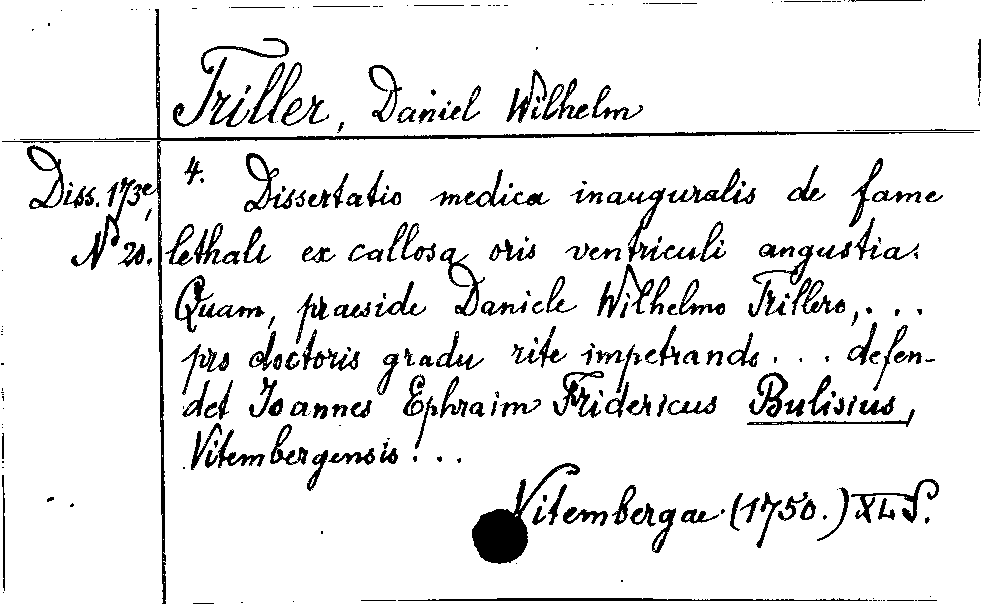 Triller, Daniel Wilhelm
Diss. 173e,
N° 20.
4. Dissertatio medica inauguralis de fame
lethali ex callosa oris ventriculi angustia.
Quam, praeside Daniele Wilhelmo Trillero, . . .
pro doctoris gradu rite impetrando . . . defen-
det Ioannes Ephraim Fridericus Bulisius,
Vitembergensis . . .
Vitembergae (1750.) XL S.